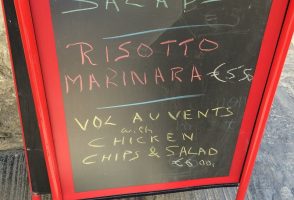 SALADS
RISOTTO
MARINARA €5.50
VOL AU VENTS
with
CHICKEN
CHIPS & SALAD
€6.00